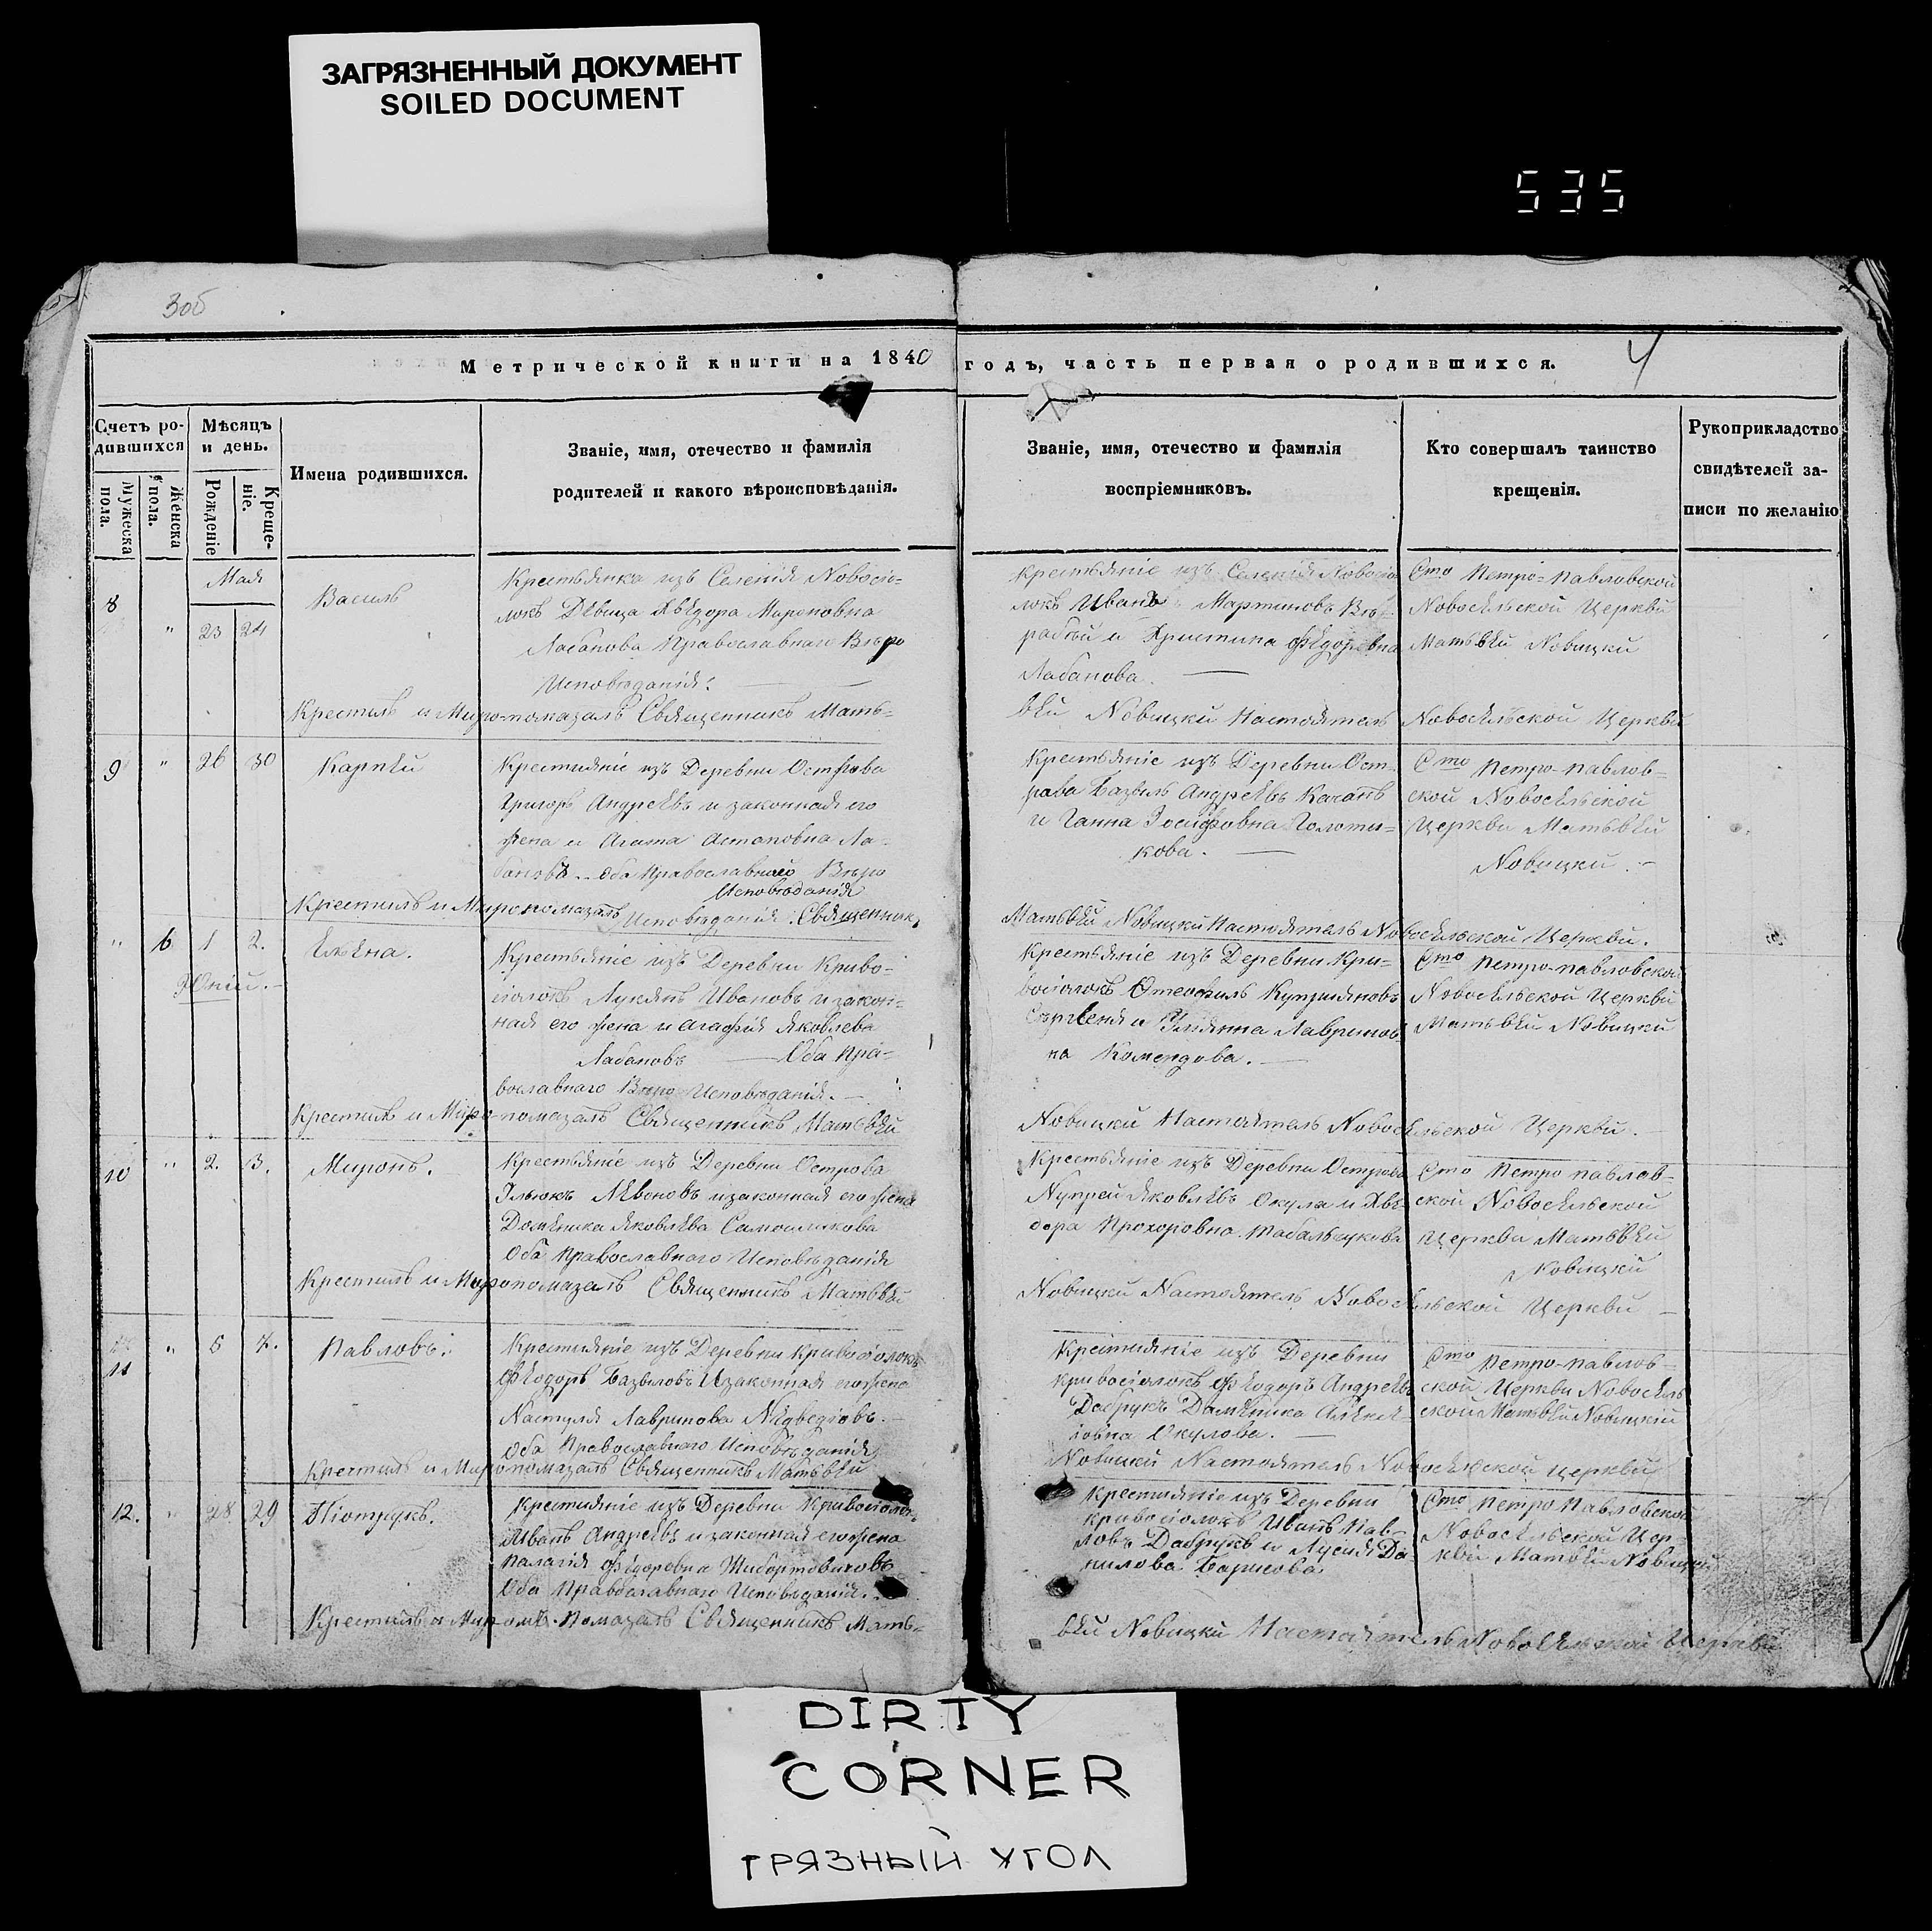 ЗАГРЯЗНЕННЫЙ ДОКУМЕНТ
SOILED DOCUMENT
535
306
Метрической книги на 1840 годъ, часть первая о родившихся.
4
Счетъ родившихся
Мужеска пола.
Женска пола.
Мѣсяцъ и день.
Рожденіе
Крещеніе.
Имена родившихся.
Званіе, имя, отечество и фамилія
родителей и какого вѣроисповѣданія.
Званіе, имя, отечество и фамилія
воспріемниковъ.
Кто совершалъ таинство
крещенія.
Рукоприкладство
свидѣтелей за-
писи по желанію
Мая
8 " 23 24
Василь
Крестьянка изъ Селенія Новосіо-
локъ Дѣвица Хвѣдора Мироновна
Лабанова Православнаго Вѣро
Исповѣданія.
Крестьяніе изъ Селенія Новосіо
локъ Иванъ Мартиновъ
и Христина Фѣдоревна
Лабанова.
Сто Петро-Павловской
Новосѣльской Церкви
Матьвѣй Новицкій
Крестилъ и Миро-помазалъ Священникъ Мать-
вѣй Новицкій Настоятель Новосѣльской Церкви
9 " 26 30
Карпѣй
Крестіяніе изъ Деревни Острова
Григоръ Андрѣевъ и законная его
жена и Агата Астаповна Ла-
бановъ. Оба Православнаго Вѣро
Исповѣданія
Крестьяніе изъ Деревни Ост-
рава Базыль Андрѣевъ Качанъ
и Ганна Іосифовна
кова.
Сто Петро-Павлов-
ской Новосѣльской
Церкви Матьвѣй
Новицкій.
Крестилъ и Миропомазалъ Исповѣданія. Священник
Матьвѣй Новицкій Настоятель Новосѣльской Церкви.
" 6 1 2.
Юній.
Елѣна.
Крестьяніе изъ Деревни Криво-
сіолокъ Лукянъ Ивановъ и закон-
ная его жена и Агафія Яковлева
Лабановъ Оба Пра-
вославнаго Вѣро Исповѣданія.
Крестьяніе изъ Деревни Кри-
восіолокъ Отеофиль Купріяновъ
и Улянна Лавринов-
на Комендова.
Сто Петро-Павловской
Новосѣльской Церкви
Матьвѣй Новицкій
Крестилъ и Миро-помазалъ Священникъ Матьвѣй
Новицкій Настоятель Новосѣльской Церкви.
10 " 2. 3.
Миронъ.
Крестьяніе изъ Деревни Острова
Ильюкъ Лѣвоновъ и законная его жена
Домѣника Яковлѣва
Оба Православнаго Исповѣданія
Крестьяніе изъ Деревни Острова
Купрей Яковлѣвъ Окула и Хвѣ-
дора Прохоровна
Сто Петро Павлов-
ской Новосѣльской
Церкви Матьвѣй
Новицкій
Крестилъ и Миропомазалъ Священникъ Матьвѣй
Новицкій Настоятель Новосѣльской Церкви
11 " 5 7.
Павловъ.
Крестіяніе изъ Деревни Кривосіолокъ
Фѣодоръ Базыловъ и законная его жена
Настуля Лавринова Мѣдведіовъ.
Оба Православнаго Исповѣданія
Крестіяніе изъ Деревни
Кривосіолокъ Фѣодоръ Андрѣевъ
Дабрукъ Домѣника Алѣкс-
іовна Окулова.
Сто Петро-Павлов-
ской Церкви Новосѣль
ской Матьвѣй Новицкій
Крестилъ и Миропомазалъ Священникъ Матьвѣй
Новицкій Настоятель Новосѣльской Церкви
12. " 28 29
Піотрукъ.
Крестіяніе изъ Деревни Кривосіолокъ
Иванъ Андрѣевъ и законная его жена
Палагія Фѣдоровна
Оба Православнаго Исповѣданія.
Крестіяніе изъ Деревни
Кривосіолокъ Иванъ Пав-
ловъ Дабрукъ и Лусія Да-
нилова
Сто Петро Павловской
Новосѣльской Цер-
кви Матьвѣй Новицкій
Крестилъ и Миромъ-Помазалъ Священникъ Мать-
вѣй Новицкій Настоятель Новосѣльской Церкви
DIRTY
CORNER
ГРЯЗНЫЙ УГОЛ